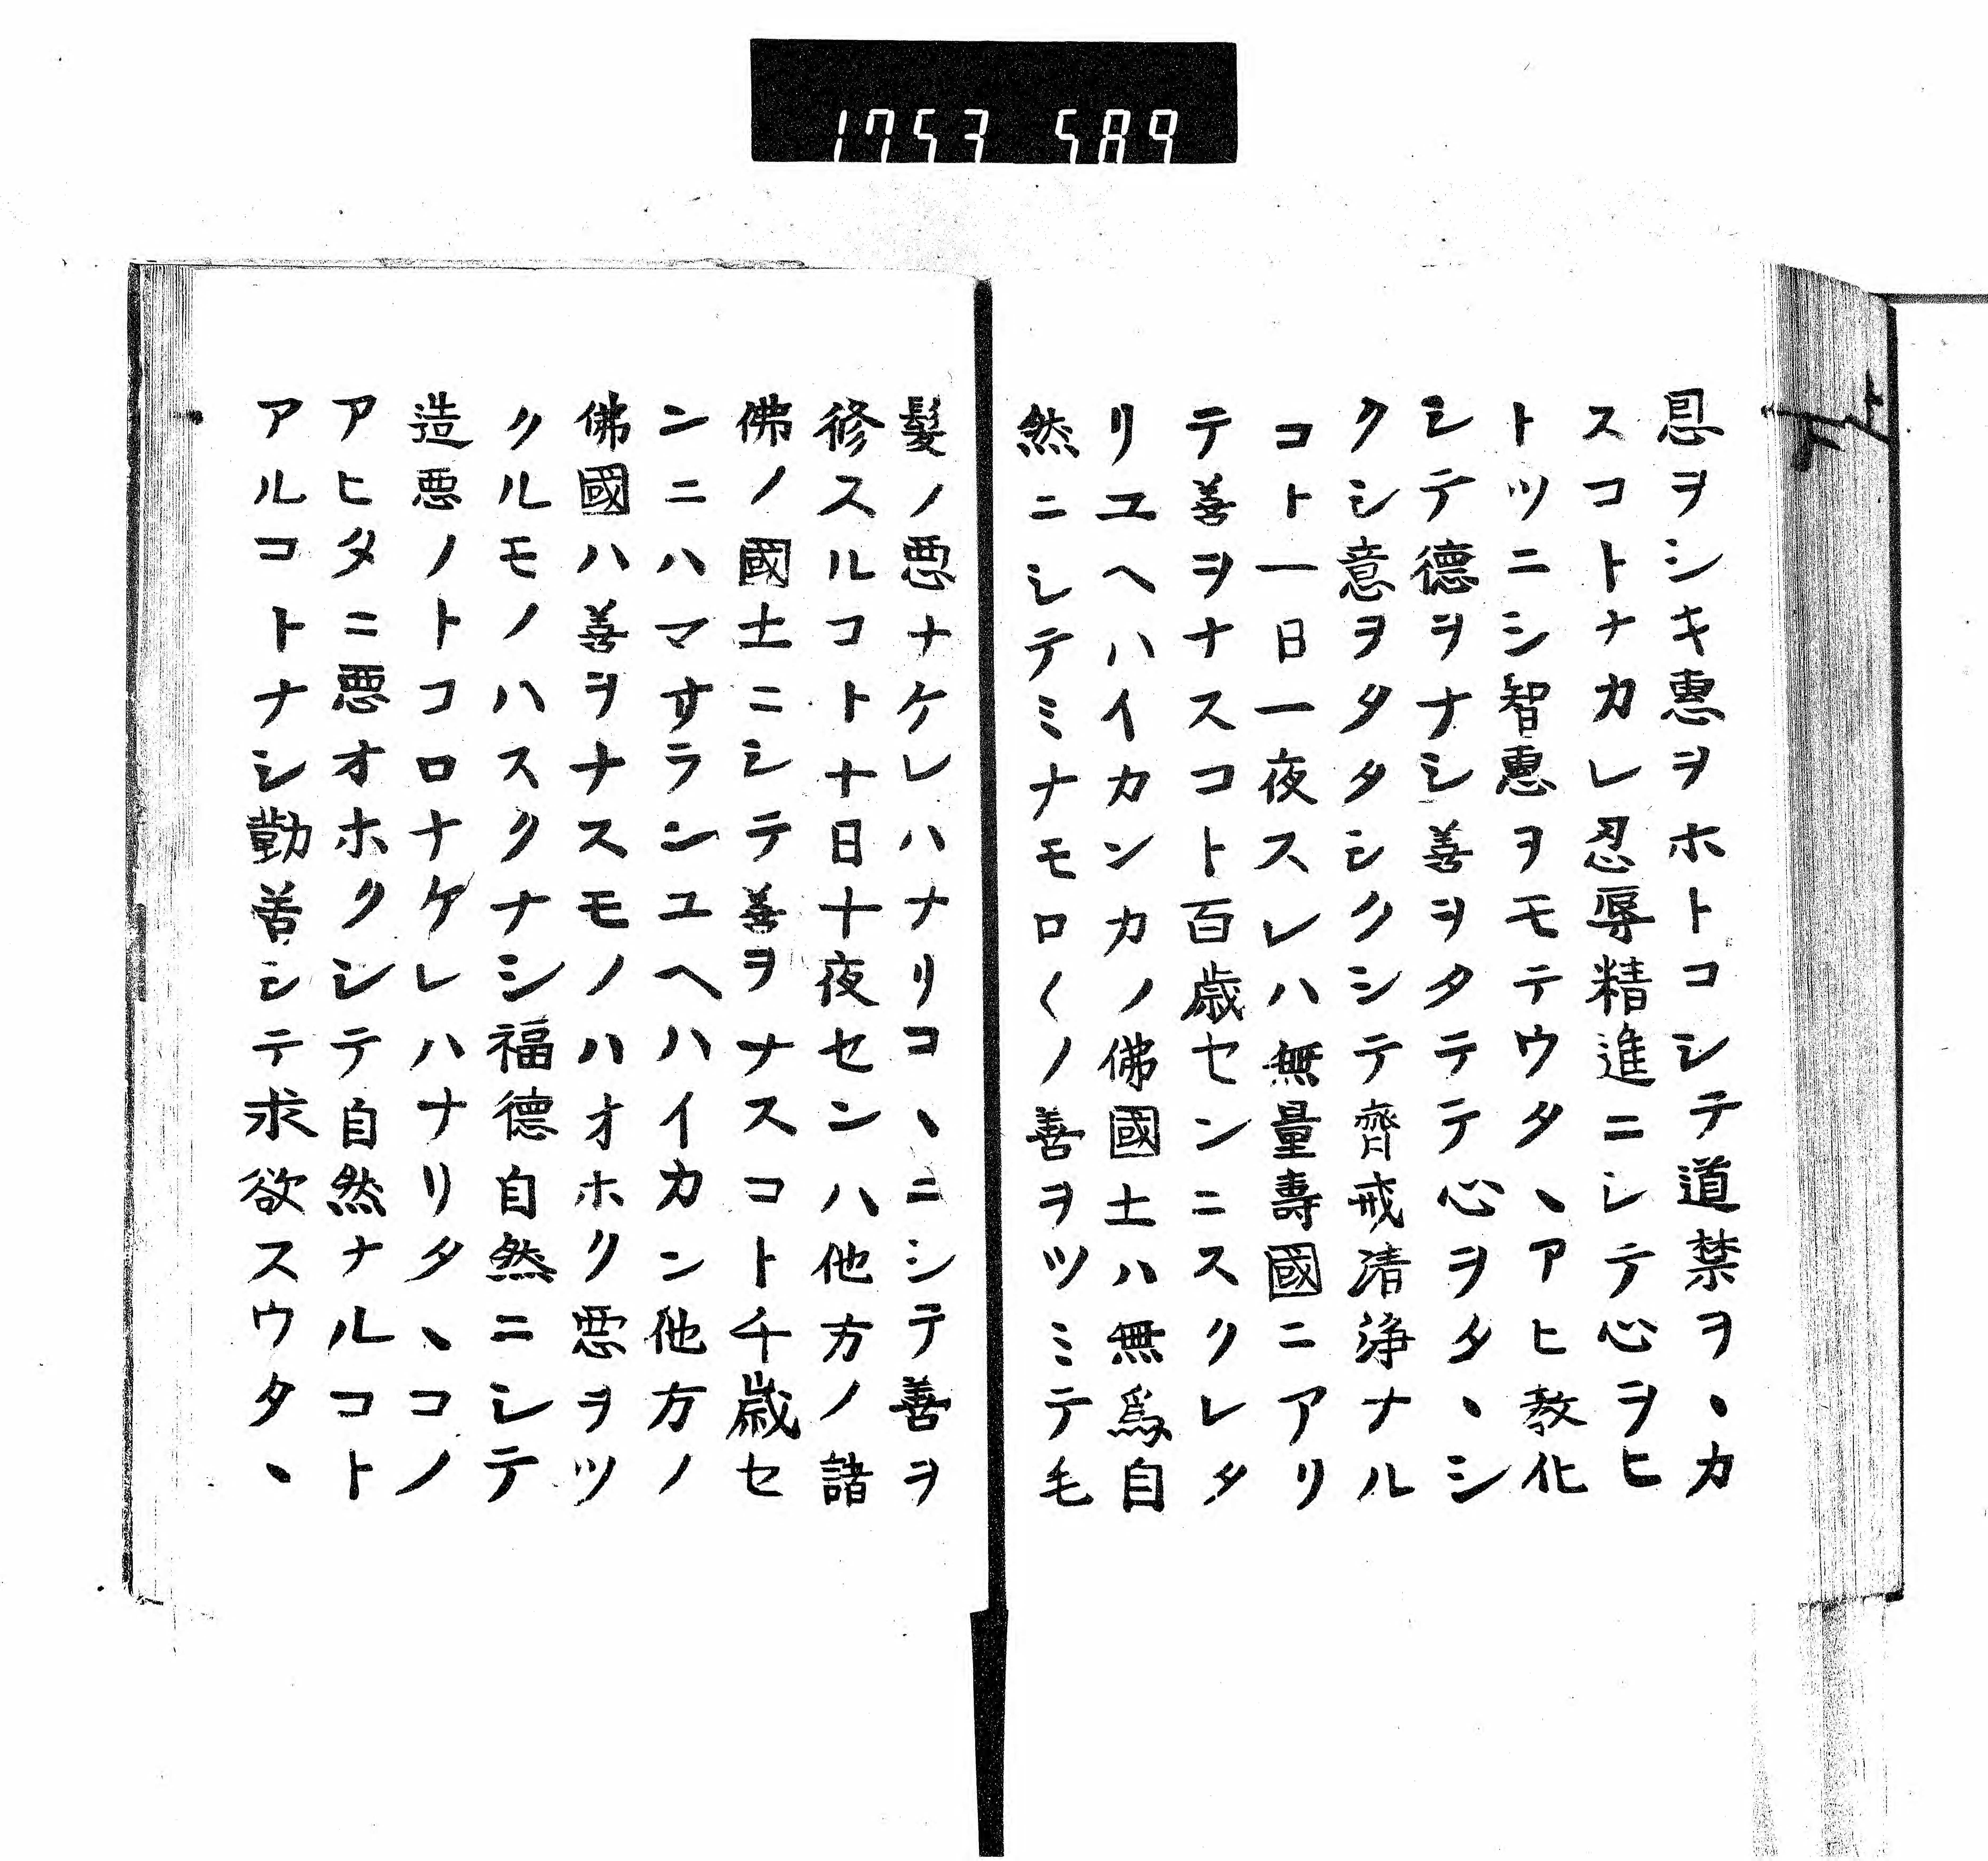 1753 589
恩ヲシキ惠ヲホトコシテ道禁ヲヽカ
スコトナカレ忍辱精進ニシテ心ヲヒ
トツニシ智惠ヲモテウタヽアヒ教化
シテ德ヲナシ善ヲタテテ心ヲタヽシ
クシ意ヲタタシクシテ齊戒清淨ナル
コト一日一夜スレハ無量壽國ニアリ
テ善ヲナスコト百歳センニスクレタ
リユヘハイカンカノ佛國土ハ無爲自
然ニシテミナモロ〱ノ善ヲツミテ毛
髮ノ惡ナケレハナリコヽニシテ善ヲ
修スルコト十日十夜センハ他方ノ諸
佛ノ國土ニシテ善ヲナスコト千歳セ
ンニハマサランユヘハイカン他方ノ
佛國ハ善ヲナスモノハオホク惡ヲツ
クルモノハスクナシ福德自然ニシテ
造惡ノトコロナケレハナリタヽコノ
アヒタニ惡オホクシテ自然ナルコト
アルコトナシ勤苦シテ求欲スウタヽ